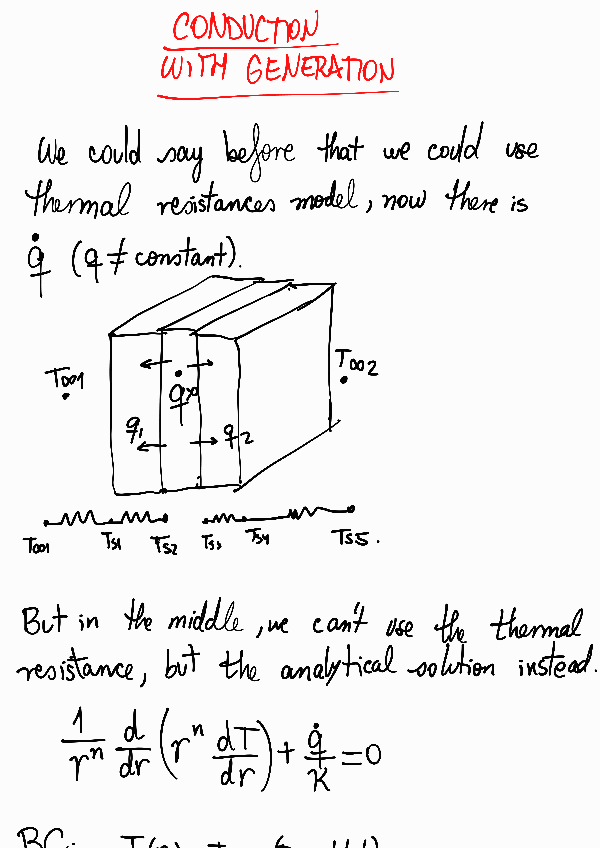 CONDUCTION
WITH GENERATION
We could say before that we could use
thermal resistances model, now there is
q̇ (q ≠ constant).
T∞1
T∞2
q̇
q1
q2
T∞1 Ts1 Ts2 Ts3 Ts4 Ts5.
But in the middle, we can't use the thermal
resistance, but the analytical solution instead.
1/rⁿ d/dr (rⁿ dT/dr) + q̇/K = 0